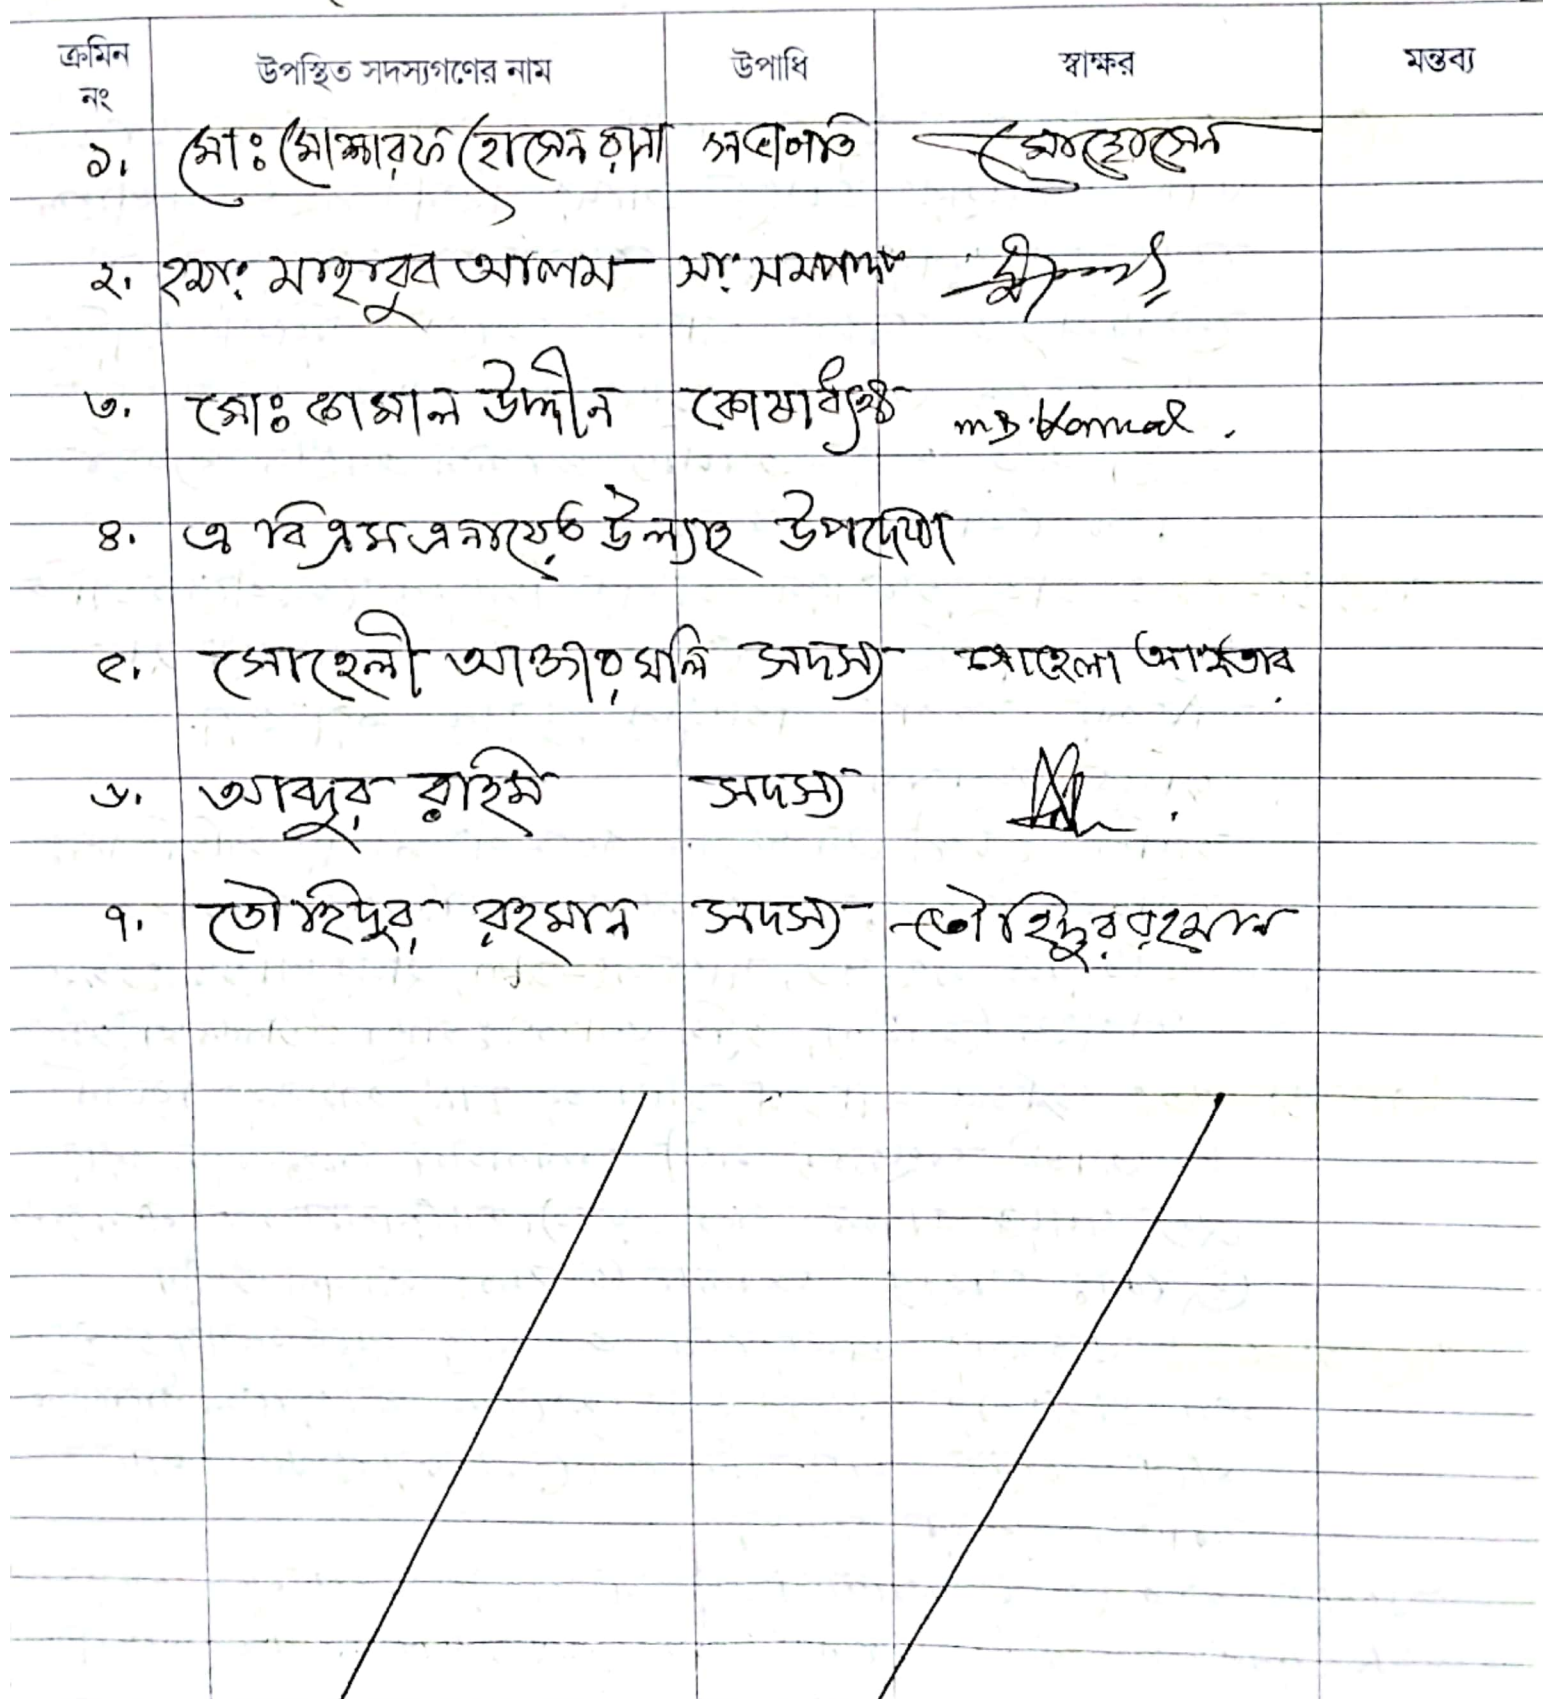 ক্রমিন নং উপস্থিত সদস্যগণের নাম উপাধি স্বাক্ষর মন্তব্য
১. মোঃ মোশারফ হোসেন রানা সভাপতি মোঃ হোসেন
২. মোঃ মাহাবুব আলম সাঃ সম্পাদক
৩. মোঃ কামাল উদ্দীন কোষাধ্যক্ষ MD. Kamal.
৪. এ বি এম এনায়েত উল্যাহ উপদেষ্টা
৫. সোহেলী আক্তার মলি সদস্য সোহেলী আক্তার
৬. আব্দুর রাহিম সদস্য
৭. তৌহিদুর রহমান সদস্য তৌহিদুর রহমান